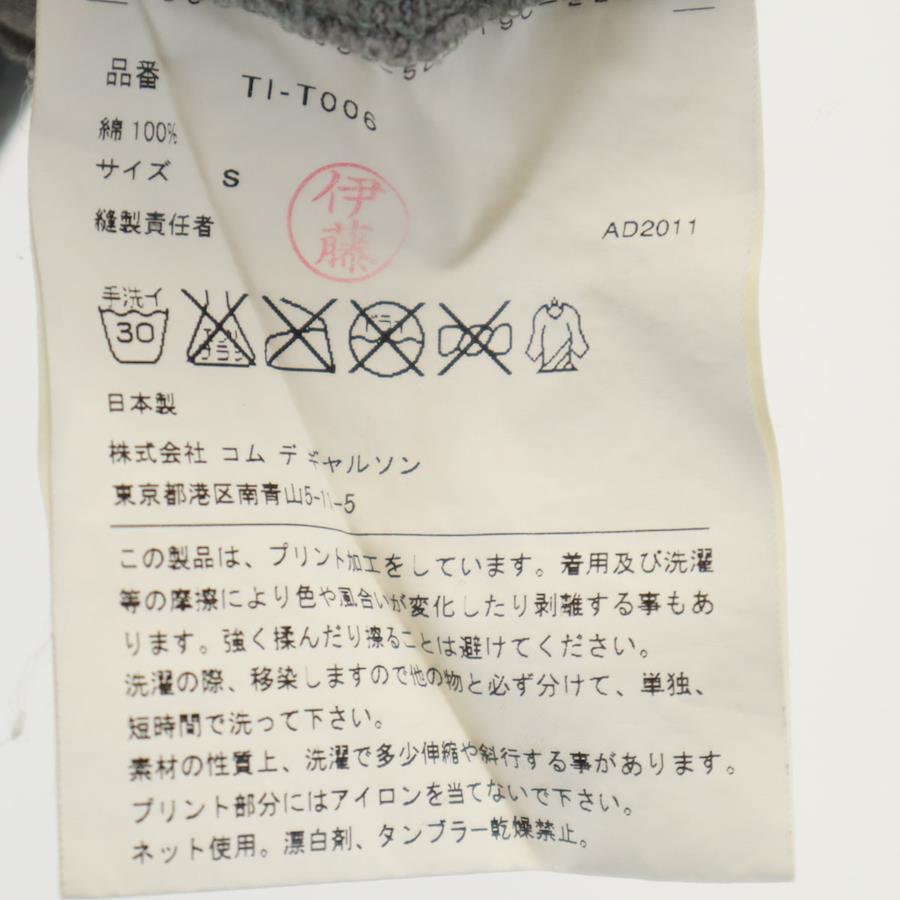 品番 TI-T006
綿 100%
サイズ S
縫製責任者 伊藤 AD2011
手洗イ
30 エンソ サラシ ドライ
日本製
株式会社 コム デ ギャルソン
東京都港区南青山5-11-5
この製品は、プリント加工をしています。着用及び洗濯
等の摩擦により色や風合いが変化したり剥離する事もあ
ります。強く揉んだり擦ることは避けてください。
洗濯の際、移染しますので他の物と必ず分けて、単独、
短時間で洗って下さい。
素材の性質上、洗濯で多少伸縮や斜行する事があります。
プリント部分にはアイロンを当てないで下さい。
ネット使用。漂白剤、タンブラー乾燥禁止。